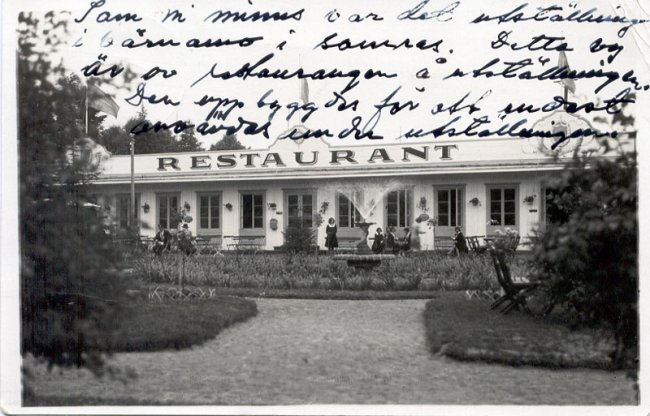 Som ni minns var det utställning
i Värnamo i somras. Detta vy
är av restaurangen å utställningen.
Den uppbygdes för att endast
användas under utställningen.
RESTAURANT